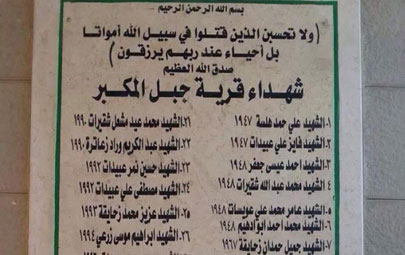 بسم الله الرحمن الرحيم
(ولا تحسبن الذين قتلوا في سبيل الله أمواتا
بل أحياء عند ربهم يرزقون)
صدق الله العظيم
شهداء قرية جبل المكبر
١-الشهيد علي حمد هلسة ١٩٤٧
٢-الشهيد فايز علي عبيدات ١٩٤٧
٣-الشهيد احمد عيسى جعفر ١٩٤٨
٤ الشهيد محمد عبد الله شقيرات ١٩٤٨
٥-الشهيد عامر محمد علي عويسات ١٩٤٨
٦-الشهيد محمد احمد ابو ادهيم ١٩٤٨
٧-الشهيد جميل حمدان زحايقة ١٩٦٧
٢١-الشهيد محمد عبد مشعل شقيرات ١٩٩٠
٢٢-الشهيد عبد الكريم وراد زعاترة ١٩٩٠
٢٣-الشهيد حسين نمر عبيدات ١٩٩٢
٢٤-الشهيد مصطفى علي عبيدات ١٩٩٢
٢٥-الشهيد عزيز محمد زحايقة ١٩٩٣
٢٦-الشهيد ابراهيم موسى زرعي ١٩٩٤